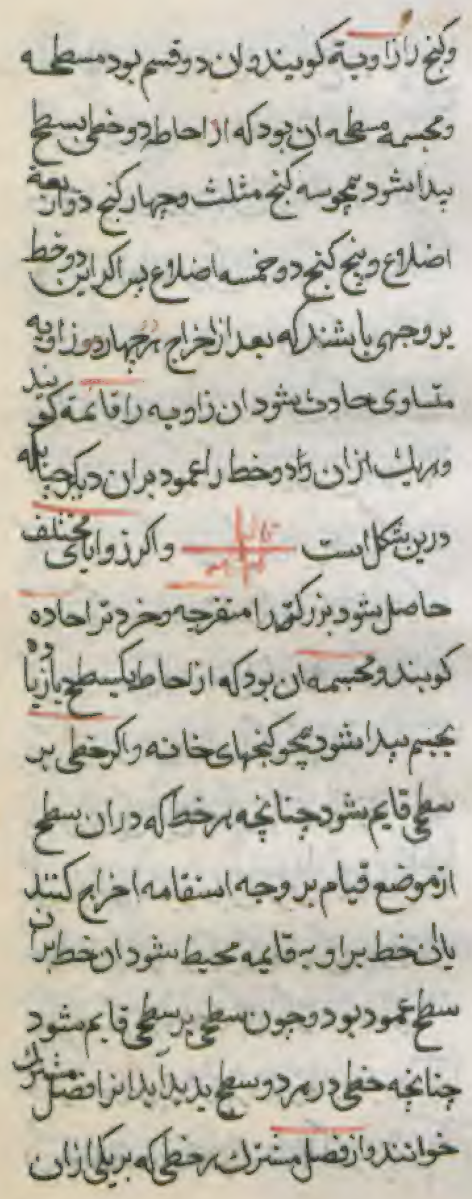 وکنج را زاویه کویند وان دو قسم بود مسطحه
ومجسمه مسطحه ان بود که از احاطه دو خط بسطح
پیدا شود همچو سه کنج مثلث وچهار کنج ذواربعة
اضلاع وپنج کنج ذو خمسه اضلاع پس اکر این دو خط
بر وجهی باشند که بعد از اخراج هر چهار دو زاویه
متساوی حادث شود ان زاویه را قائمه کویند
وهریك از ان دو خط را عمود بران دیکر چنانکه
درین شکل است واکر زوایای مختلف
حاصل شود بزرکتر را منفرجه وخردتر احاده
کویند ومجسمه ان بود که از احاطه یکسطح یا زیاده
بجسم پیدا شود همچو کنجهای خانه واکر خطی بر
سطحی قایم شود چنانچه هر خط که دران سطح
از موضع قیام بر وجه استقامه اخراج کنند
باان خط بزاویه قایمه محیط شود ان خط بران
سطح عمود بود وچون سطحی بر سطحی قایم شود
چنانچه خطی در هر دو سطح پدید اید انرا فصل مشترك
خوانند واز فصل مشترك هر خطی که بر یکی ازان